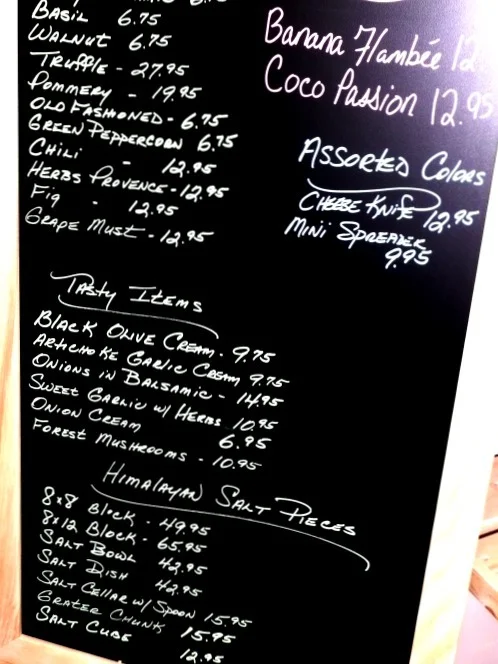 Basil 6.75
Walnut 6.75
Truffle - 27.95
Pommery - 19.95
Old Fashioned - 6.75
Green Peppercorn 6.75
Chili - 12.95
Herbs Provence - 12.95
Fig - 12.95
Grape Must - 12.95
Banana Flambée 12.
Coco Passion 12.95
Assorted Colors
Cheese Knife 12.95
Mini Spreader
9.95
Tasty Items
Black Olive Cream - 9.75
Artichoke Garlic Cream 9.75
Onions in Balsamic - 14.95
Sweet Garlic w/ Herbs 10.95
Onion Cream 6.95
Forest Mushrooms - 10.95
Himalayan Salt Pieces
8x8 Block - 49.95
8x12 Block - 65.95
Salt Bowl 42.95
Salt Dish 42.95
Salt Cellar w/ Spoon 15.95
Grater Chunk 15.95
Salt Cube 12.95